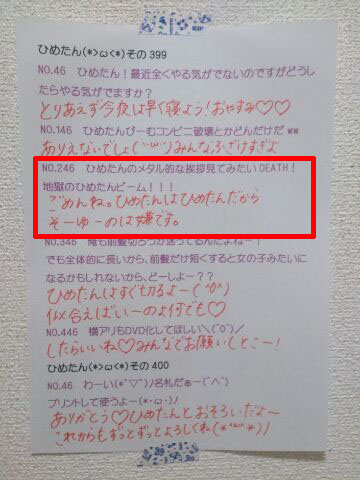 ひめたん(*>ω<*)その399
NO.46　ひめたん！最近全くやる気がでないのですがどうし
たらやる気がでますか？
とりあえず今夜は早く寝よう！おやすみ♡♡
NO.146　ひめたんびーむコンビニ破壊とかどんだけだww
ありえないでしょ(´'ω'`)みんなふざけすぎよ
NO.246　ひめたんのメタル的な挨拶見てみたいDEATH！
地獄のひめたんビーム！！！
ごめんね。ひめたんはひめたんだから
そーゆーのは嫌です。
NO.346　俺も前髪切ろうか迷ってるんだよねー！
でも全体的に長いから、前髪だけ短くすると女の子みたいに
なるかもしれないから、どーしよー？？
ひめたんはすぐ切るよー(^O^)
似合えばいーのよ何でも♡
NO.446　横アリもDVD化してほしい＼(^o^)／
したらいいね♡みんなでお願いしとこー！
ひめたん(*>ω<*)その400
NO.46　わーい(*ﾟ▽ﾟ)ﾉ名札だぁー(^∧^)
プリントして使うよー(*･ω･)ﾉ
ありがとう♡ひめたんとおそろいだよー
これからもずっとずっとよろしくね(*'''*)ﾉ